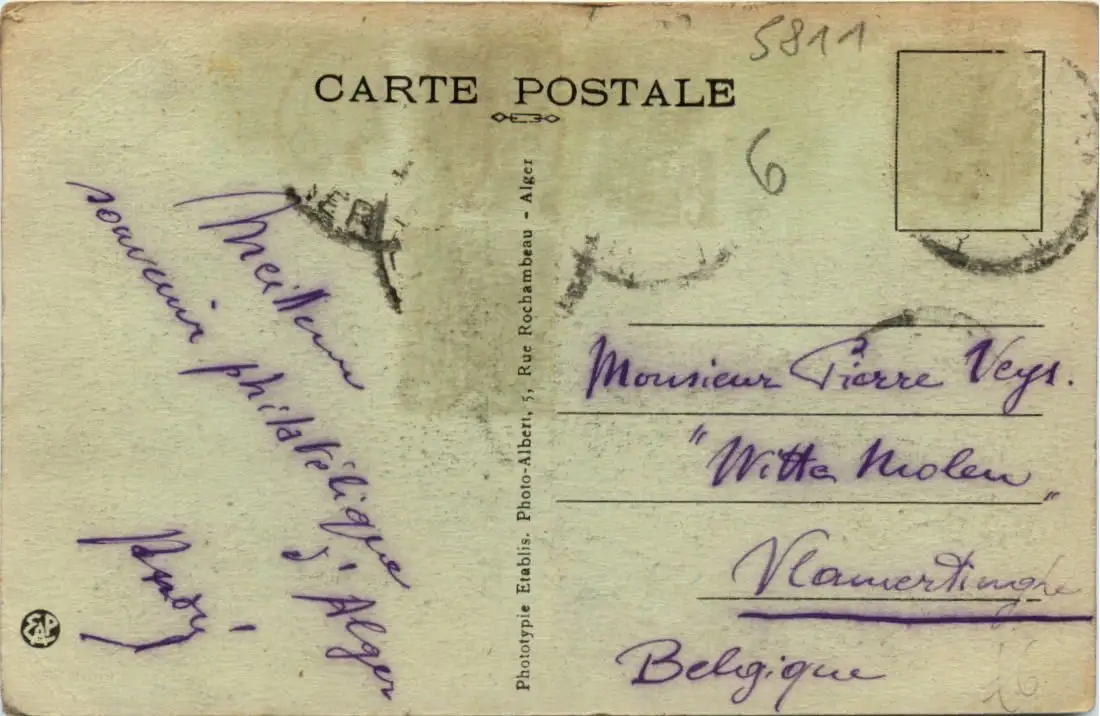 5811
CARTE POSTALE
6
Meilleur
souvenir philatélique
d'Alger
Phototypie Etablis. Photo-Albert, 5, Rue Rochambeau - Alger
Monsieur Pierre Veys.
"Witte Molen"
Vlamertinghe
Belgique